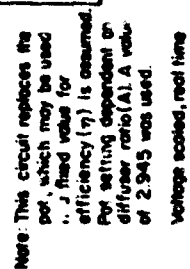 Note: This circuit replaces the
pot, which may be used
a fixed value for
efficiency (η) is assumed.
Pot setting dependent on
diffuser ratio (A). A value
of 2.945 was used.
Voltage scaled, real time